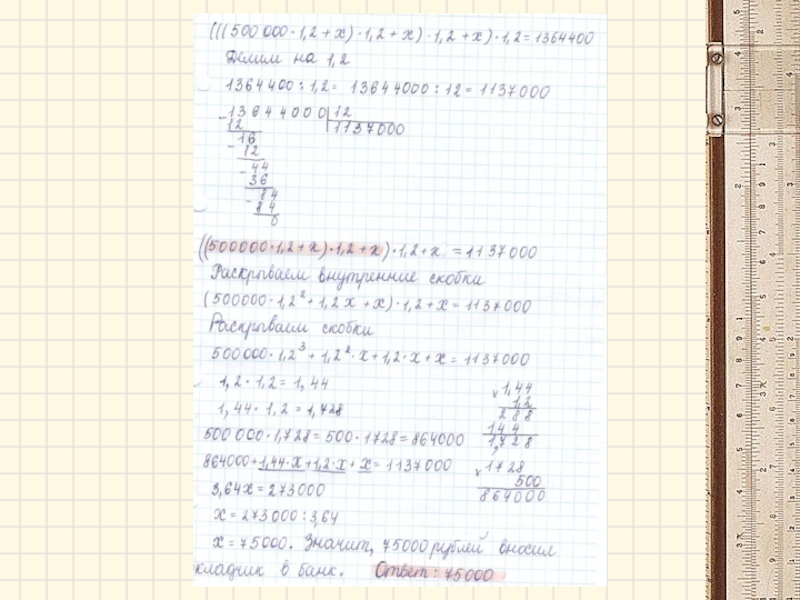 (((500 000·1,2+x)·1,2+x)·1,2+x)·1,2=1364400
Делим на 1,2
1364400:1,2= 13644000:12=1137000
13644000 12
12 1137000
16
12
44
36
84
84
0
((500000·1,2+x)·1,2+x)·1,2+x =1137000
Раскрываем внутренние скобки
(500000·1,2²+1,2x+x)·1,2+x=1137000
Раскрываем скобки
500000·1,2³+1,2²·x+1,2·x+x=1137000
1,2·1,2=1,44
1,44·1,2=1,728
1,44
1,2
288
144
1,728
500 000·1,728=500·1728=864000
864000+1,44·x+1,2·x+x=1137000
1728
500
864000
3,64x=273000
x=273000:3,64
x=75000. Значит, 75000 рублей вносил
кладчик в банк. Ответ: 75000